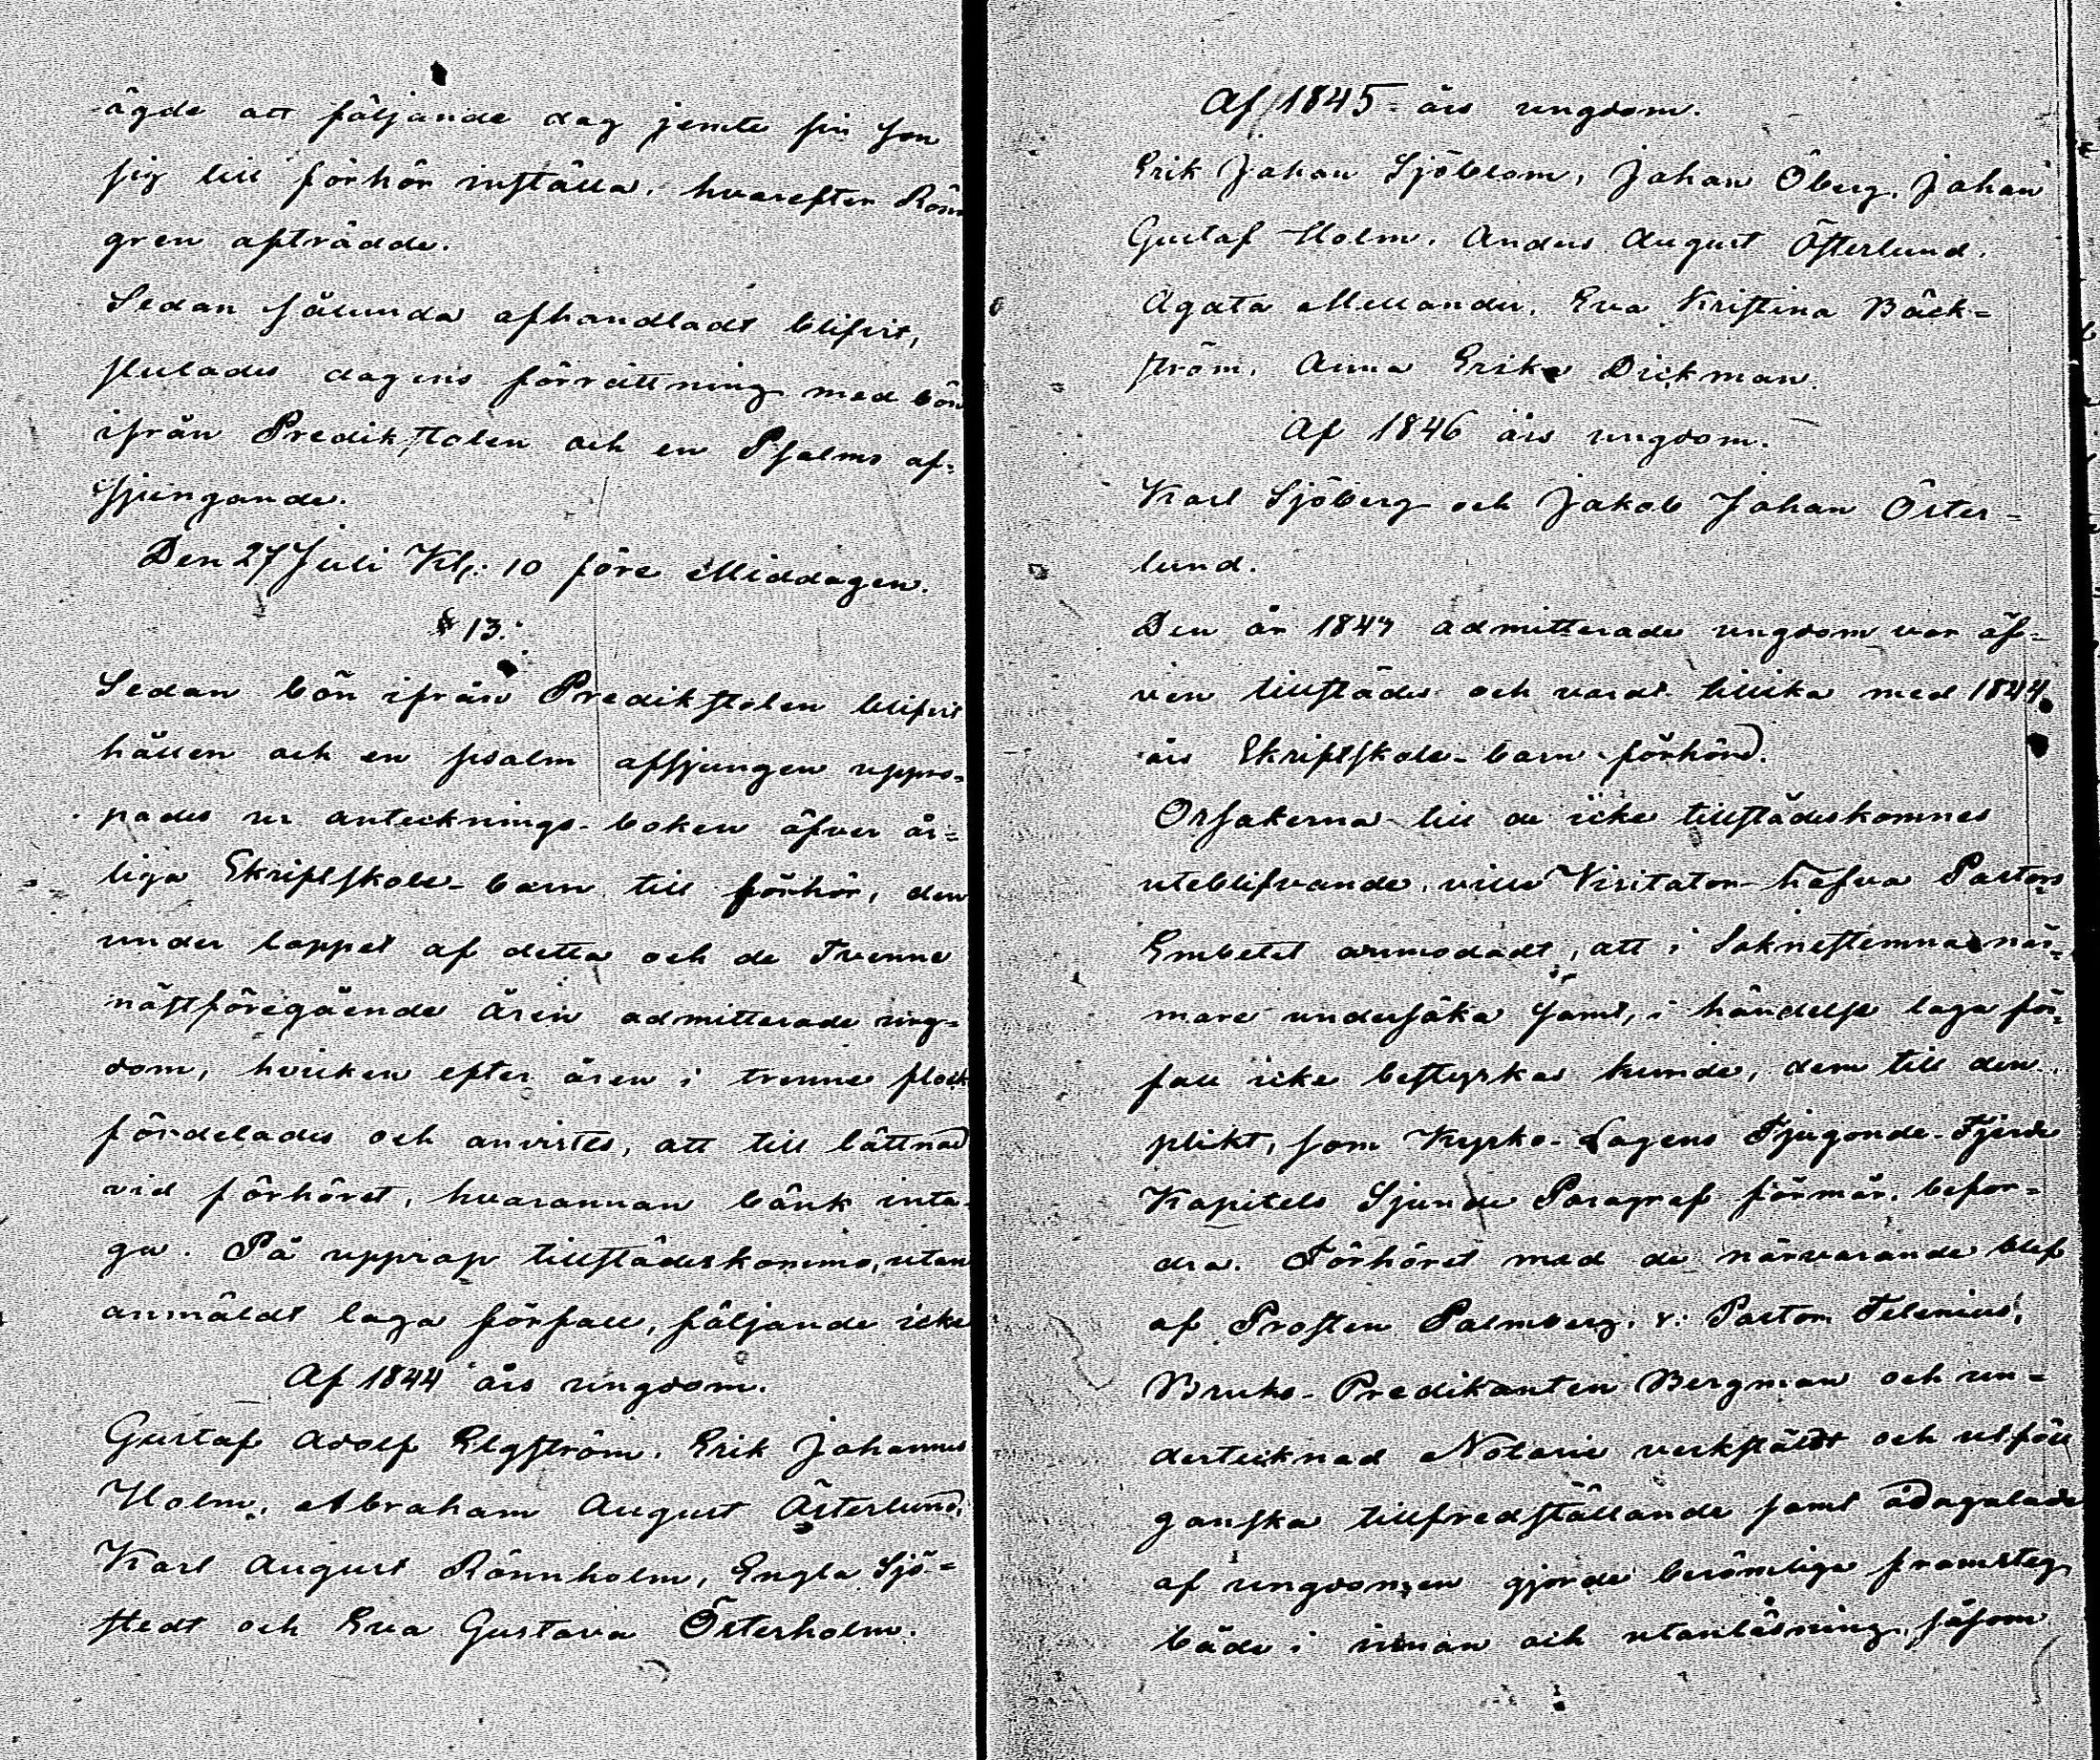 ägde att följande dag jemte sin son
sig till förhör inställa, hvarefter Rönn
gren afträdde.
Sedan sålunda afhandladt blifvit,
slutades dagens förrättning med bön
ifrån Predikstolen och en Psalms af-
sjungande.
Den 27 Juli Kl. 10 före Middagen.
§ 13.
Sedan bön ifrån Predikstolen blifvit
hållen och en psalm afsjungen uppro-
pades ur antecknings-boken öfver år-
liga Skriftskole-barn till förhör, den
under loppet af detta och de tvenne
nästföregående åren admitterade ung-
dom, hvilken efter åren i trenne flock
fördelades och anvistes, att till lättnad
vid förhöret, hvarannan bänk inta-
ga. På upprop tillstädeskommo, utan
anmäldt laga förfall, följande icke
Af 1844 års ungdom.
Gustaf Adolf Elgström, Erik Johannes
Holm, Abraham August Österlund,
Karl August Rönnholm, Engla Sjö-
stedt och Eva Gustava Österholm.
Af 1845 års ungdom.
Erik Johan Sjöblom, Johan Öberg, Johan
Gustaf Holm, Anders August Österlund,
Agata Mellander, Eva Kristina Bäck-
ström, Anna Erika Dickman.
Af 1846 års ungdom.
Karl Sjöberg och Jakob Johan Öster-
lund.
Den år 1847 admitterade ungdom var äf-
ven tillstädes och vardt tillika med 1844
års Skriftskole-barn förhörd.
Orsakerna till de icke tillstädeskomnes
uteblifvande, ville Visitator hafva Pastors
Embetet anmodadt, att i Sokneftemna när-
mare undersöka samt, i händelse laga för-
fall icke bestyrkas kunde, dem till den
plikt, som Kyrko-Lagens Tjugonde-Fjerde
Kapitels Sjunde Paragraf förmår, befor-
dra. Förhöret med de närvarande blef
af Prosten Palmberg, v. Pastor Telenius,
Bruks-Predikanten Bergman och un-
dertecknad Notarie verkstäldt och utföll
ganska tillfredställande samt ådagalade
af ungdomen gjorde berömliga framsteg
både i innan och utanläsning, såsom